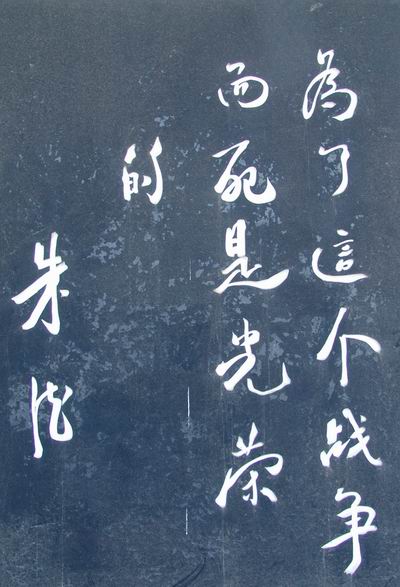 為了這个战争
而死是光荣
的
朱德